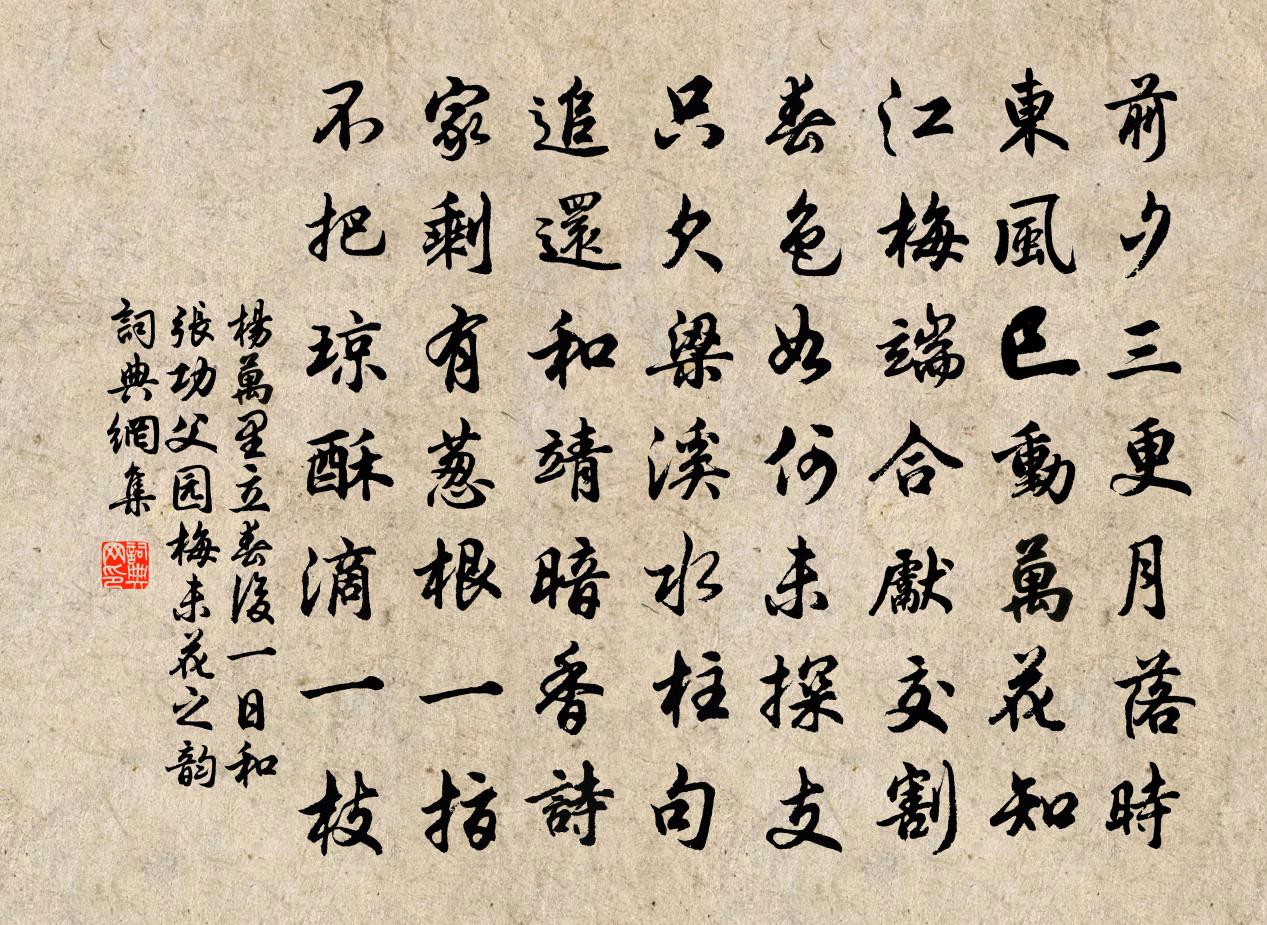 前夕三更月落時
東風已動萬花知
江梅端合獻交割
春色如何未探支
只欠梁溪水柱句
追還和靖暗香詩
家剩有蔥根一指
不把琼酥滴一枝
楊萬里立春後一日和
張功父园梅未花之韵
詞典網集
詞典
网印